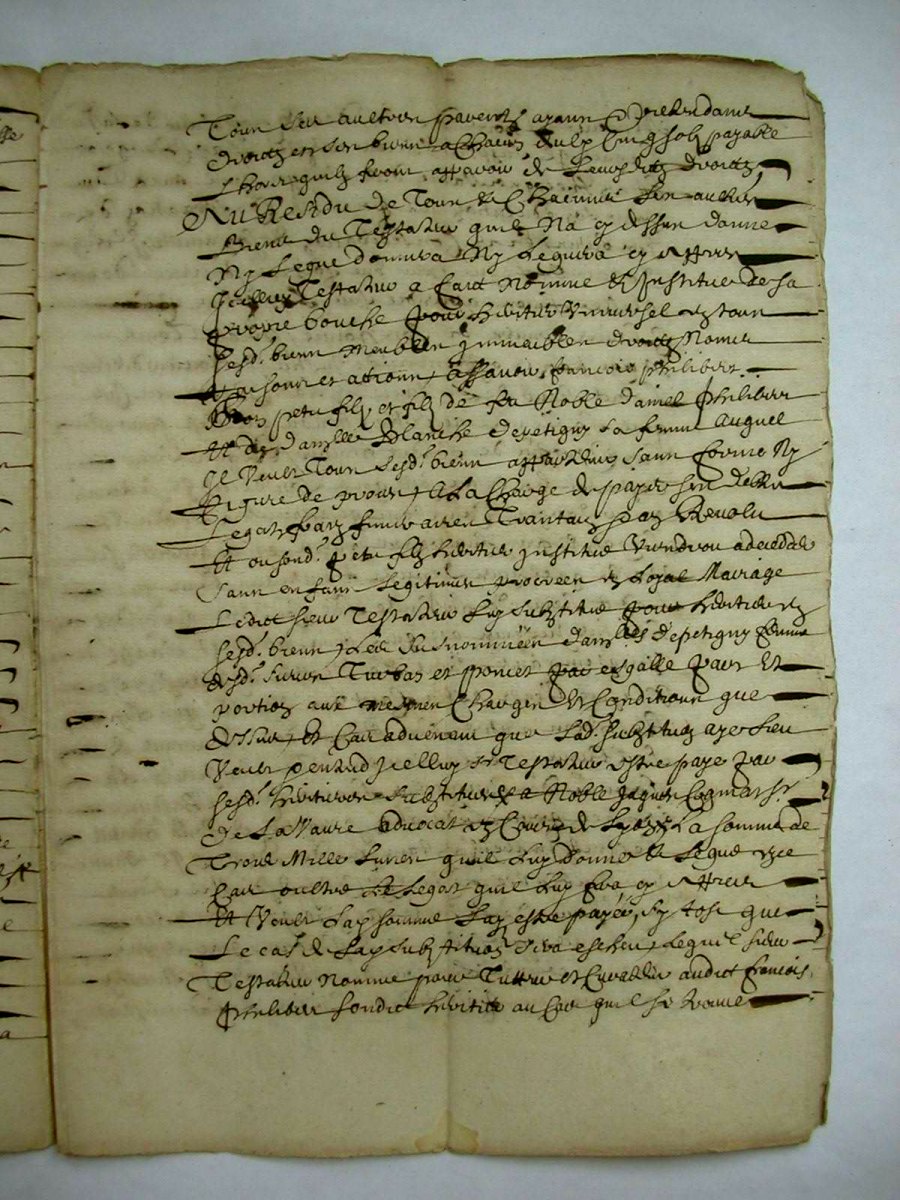 Tous ses aultres parents ayans pretendans
droictz en ses biens a chacun d'ulx cinq solz payable
Lhors quilz feront apparoir de leurs ditz droictz
Au Residu de Tous & chacuns ses aultres
Biens du Testateur quil Na cy dessus donne
Ny Legue donnera Ny Leguera cy appres
Icelluy Testateur a faict Nomme & Institue de sa
propre bouche pour heritier universel en tous
sesd. biens meubles immeubles droictz Noms
Raisons et actions assavoir francois philibert
son petit filz et filz de feu Noble daniel philibert
Et de dam.lle Blanche depetigny sa femme Auquel
Il Veult Tous sesd. biens appartenir sans forme Ny
figure de proces A La Charge de payer ses debtes
Legatz fraiz funeraires Trantain et an Revolu
Et ou sond. petit filz heritier institue Viendroit a deceder
sans enfans Legitimes procreés en Loyal Mariage
Ledict sieur Testateur Luy substitue pour heritier en
sesd. biens Les susnommées dam.lles depetigny femme
desd. sieurs Turbas et poncet par esgalle part Et
portion aux mesmes Charges & Conditions que
dessus Et Cas advenant que Lad. substitution aye Lieu
Veult & entend Icelluy Sr Testateur estre paye par
sesd. heritieres substituées a Noble Jaques Cogmat Sr
De La Vaure advocat en Cours de Lyon La somme de
Trois Mille Livres quil Luy donne & Legue en ce
Cas oultre Le Legat quil Luy fera cy appres
Et Veult Lad. somme Luy estre payée sy tost que
Le cas de Lad. substitution sera escheu Lequel sieur
Testateur Nomme pour Tutteur et Curateur audict francois
philibert sondict heritier au Cas quil se treuve